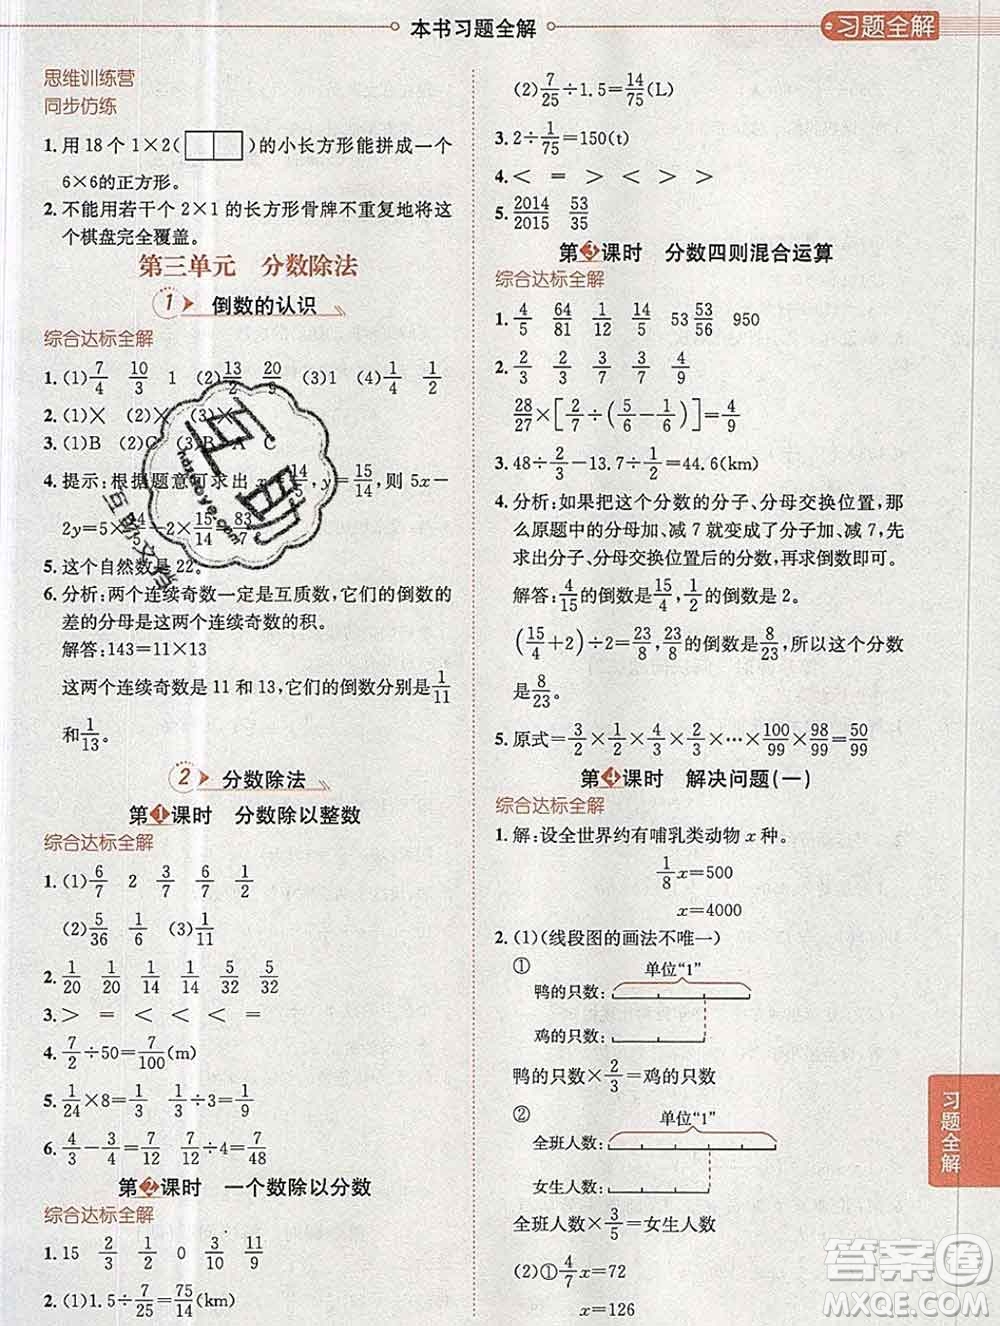 本书习题全解
习题全解
思维训练营
同步仿练
1. 用 18 个 1×2( )的小长方形能拼成一个
6×6的正方形。
2. 不能用若干个 2×1 的长方形骨牌不重复地将这
个棋盘完全覆盖。
第三单元 分数除法
1 倒数的认识
综合达标全解
1. (1) 7/4 10/3 1 (2) 13/2 20/9 (3)1 (4) 1/4 1/2
2. (1)× (2)× (3)×
3. (1)B (2)C (3)B A C
4. 提示:根据题意可求出 x= 14/ , y= 15/14 ,则 5x-
2y=5× 14/ -2× 15/14 = 83/7
5. 这个自然数是 22。
6. 分析:两个连续奇数一定是互质数,它们的倒数的
差的分母是这两个连续奇数的积。
解答:143=11×13
这两个连续奇数是 11 和 13,它们的倒数分别是 1/11
和 1/13 。
2 分数除法
第1课时 分数除以整数
综合达标全解
1. (1) 6/7 2 3/7 6/7 1/2
(2) 5/36 1/6 (3) 1/11
2. 1/20 1/20 1/32 5/32 5/32
3. > = < < < =
4. 7/2 ÷50= 7/100 (m)
5. 1/24 ×8= 1/3 1/3 ÷3= 1/9
6. 4/3 - 3/4 = 7/12 7/12 ÷4= 7/48
第2课时 一个数除以分数
综合达标全解
1. 15 2/3 1/2 0 3/10 1/9
2. (1)1.5÷ 7/25 = 75/14 (km)
(2) 7/25 ÷1.5= 14/75 (L)
3. 2÷ 1/75 =150(t)
4. < < = > >
5. 2014/2015 53/35
第3课时 分数四则混合运算
综合达标全解
1. 4/5 64/81 1/12 14/5 53 53/56 950
2. 2/3 2/7
28/27 ×[ 2/7 ÷( 5/6 - 1/6 )]= 4/9
3. 48÷ 2/3 -13.7÷ 1/2 =44.6(km)
4. 分析:如果把这个分数的分子、分母交换位置,那
么原题中的分母加、减 7 就变成了分子加、减7,先
求出分子、分母交换位置后的分数,再求倒数即可。
解答: 4/15 的倒数是 15/4 , 1/2 的倒数是 2。
( 15/4 +2)÷2= 23/8 , 23/8 的倒数是 8/23 ,所以这个分数
是 8/23 。
5. 原式= 3/2 × 1/2 × 4/3 × 2/3 ×…× 100/99 × 98/99 = 50/99
第4课时 解决问题(一)
综合达标全解
1. 解:设全世界约有哺乳类动物 x 种。
1/8 x=500
x=4000
2. (1)(线段图的画法不唯一)
①
单位“1”
鸭的只数:
鸡的只数:
鸭的只数× 2/3 =鸡的只数
②
单位“1”
全班人数:
女生人数:
全班人数× 3/5 =女生人数
(2)① 4/7 x=72
x=126
习题全解
互助
hdzuoye.com
互助文档
答案圈
MXQE.COM